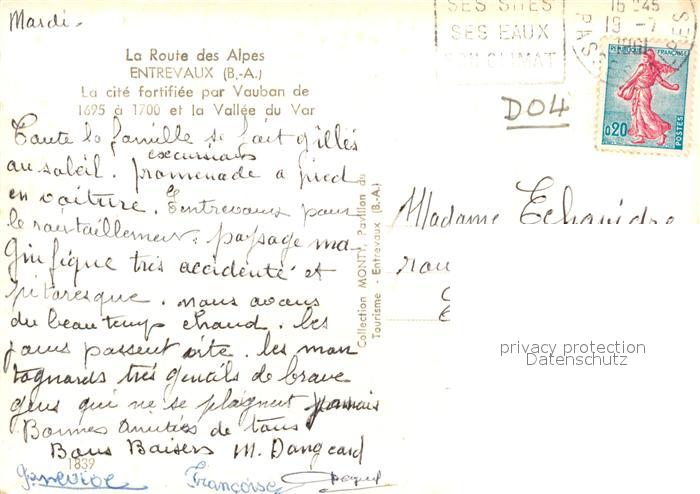 Mardi.
SES SITES
SES EAUX
SON CLIMAT
16 H45
19 -7
1961
REPUBLIQUE FRANÇAISE
0,20
POSTES
D04
La Route des Alpes
ENTREVAUX (B.-A.)
La cité fortifiée par Vauban de
1695 à 1700 et la Vallée du Var
Toute la famille se fait griller
au soleil. excursions promenade a pied
en voiture. Entrevaux pour
le ravitaillement: paysage ma-
gnifique très accidenté et
pitoresque. nous avons
du beau temps chaud. les
jours passent vite. les mon
tagnards très gentils de brave
gens qui ne se plaignent jamais
Bonnes Amitiés de tous
Bons Baisers M. Dangeard
1839
Geneviève Françoise
Collection MONTY, Pavillon du
Tourisme - Entrevaux (B.-A.)
Madame
privacy protection
Datenschutz